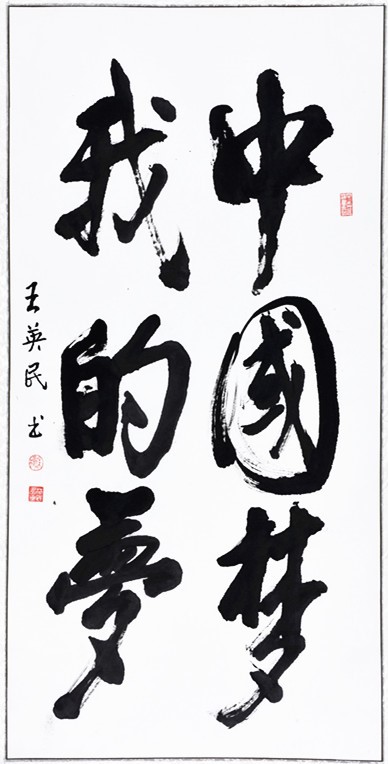 中国梦
我的夢
王英民书